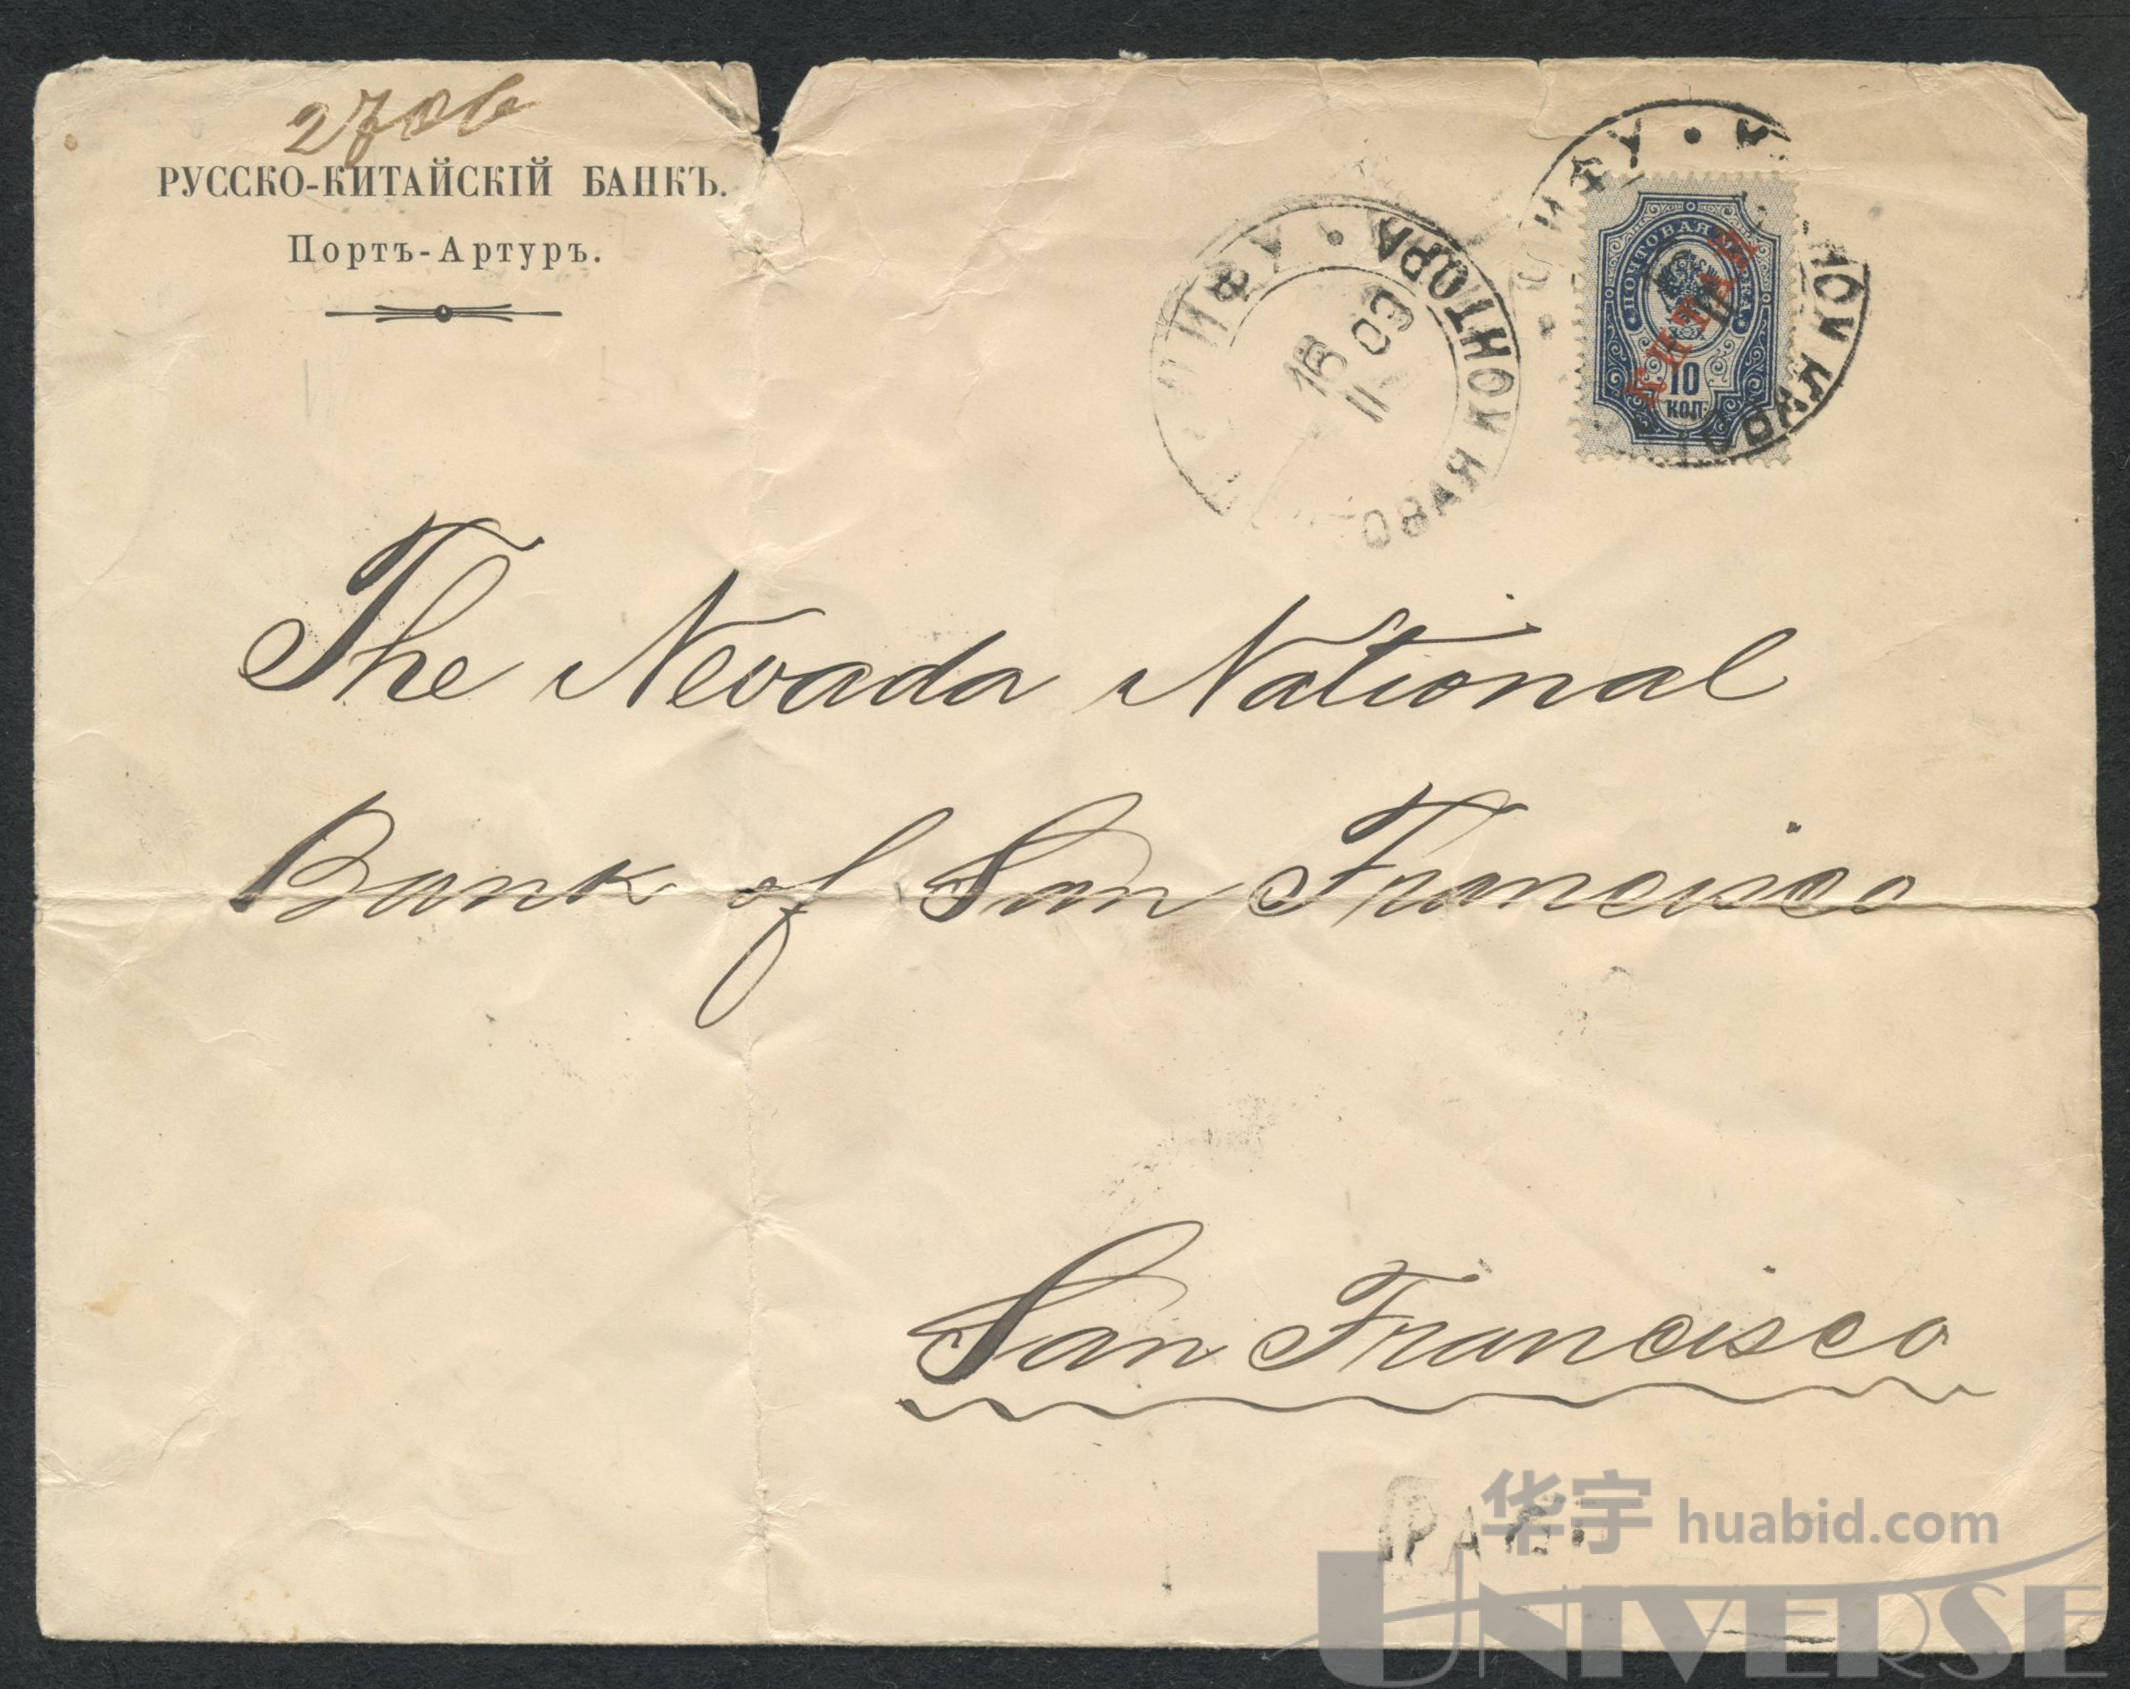 2706
РУССКО-КИТАЙСКІЙ БАНКЪ.
Портъ-Артуръ.
ЧИФУ • ПОЧТОВАЯ КОНТОРА
16
II
03
ЧИФУ
ПОЧТОВАЯ МАРКА
КИТАЙ
10
КОП.
The Nevada National
Bank of San Francisco
San Francisco
华宇 huabid.com
UNIVERSE